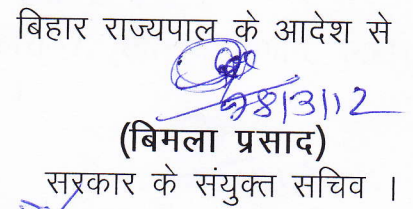 बिहार राज्यपाल के आदेश से
28/3/12
(बिमला प्रसाद)
सरकार के संयुक्त सचिव ।